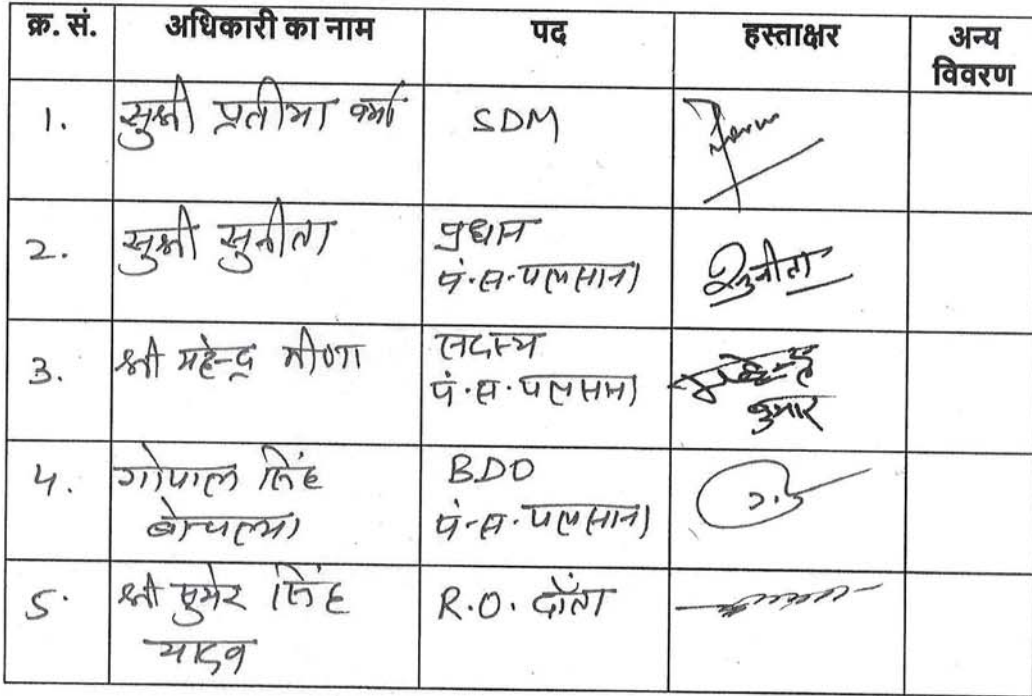 क्र. सं. अधिकारी का नाम पद हस्ताक्षर अन्य विवरण
1. सुश्री प्रतीभा वर्मा SDM
2. सुश्री सुनीता प्रधान
पं.स. पलसाना सुनीता
3. श्री महेन्द्र मीणा सदस्य
पं.स. पलसाना महेन्द्र
कुमार
4. गोपाल सिंह BDO
पं.स. पलसाना
5. श्री सुमेर सिंह R.O. दाँता
यादव